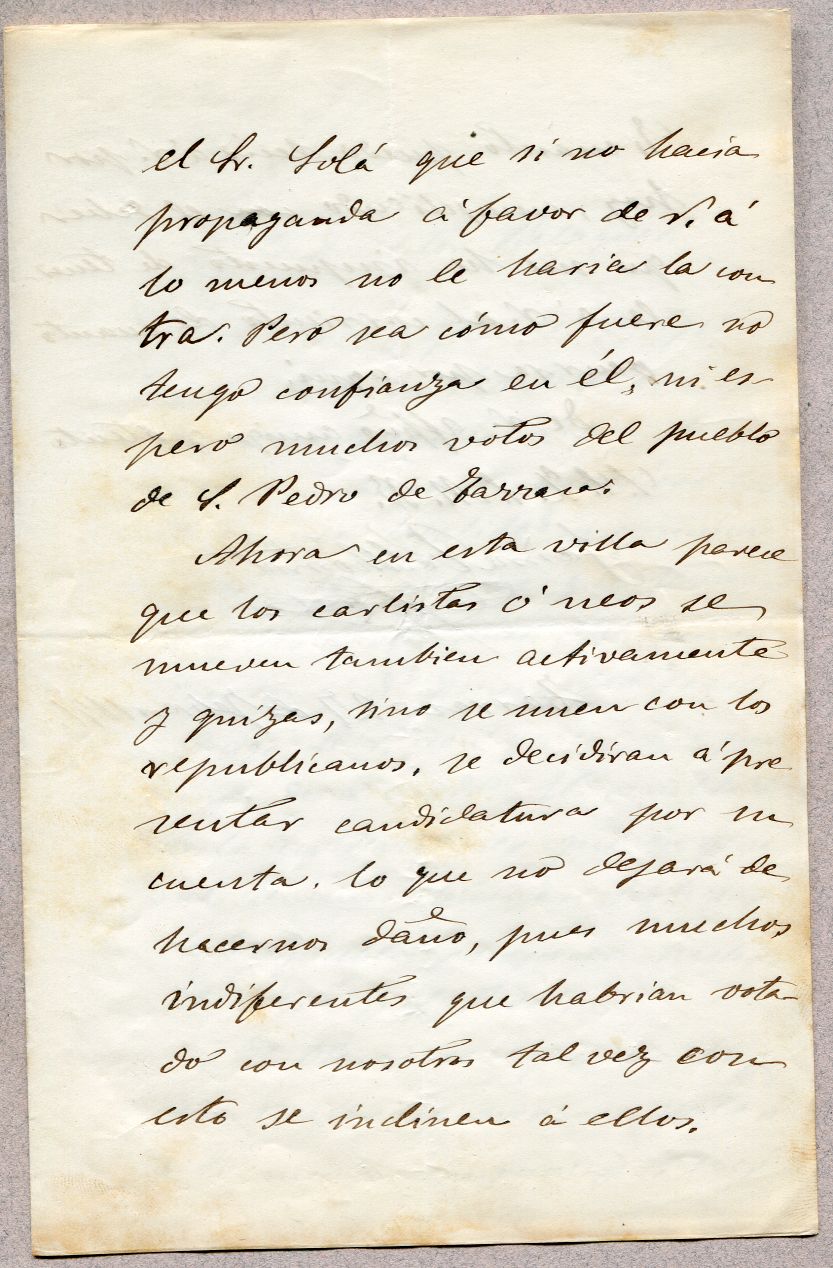 el Sr. Solá que si no hacia
propaganda á favor de V. á
lo menos no le haria la con
tra. Pero sea cómo fuere no
tengo confianza en él, ni es-
pero muchos votos del pueblo
de S. Pedro de Tarrasa.
Ahora en esta villa parece
que los carlistas ó neos se
mueven tambien activamente
y quizas, sino se unen con los
republicanos, se decidiran á pre
sentar candidatura por su
cuenta. lo que no dejará de
hacernos daño, pues muchos
indiferentes que habrian vota-
do con nosotros tal vez con
esto se inclinen á ellos.